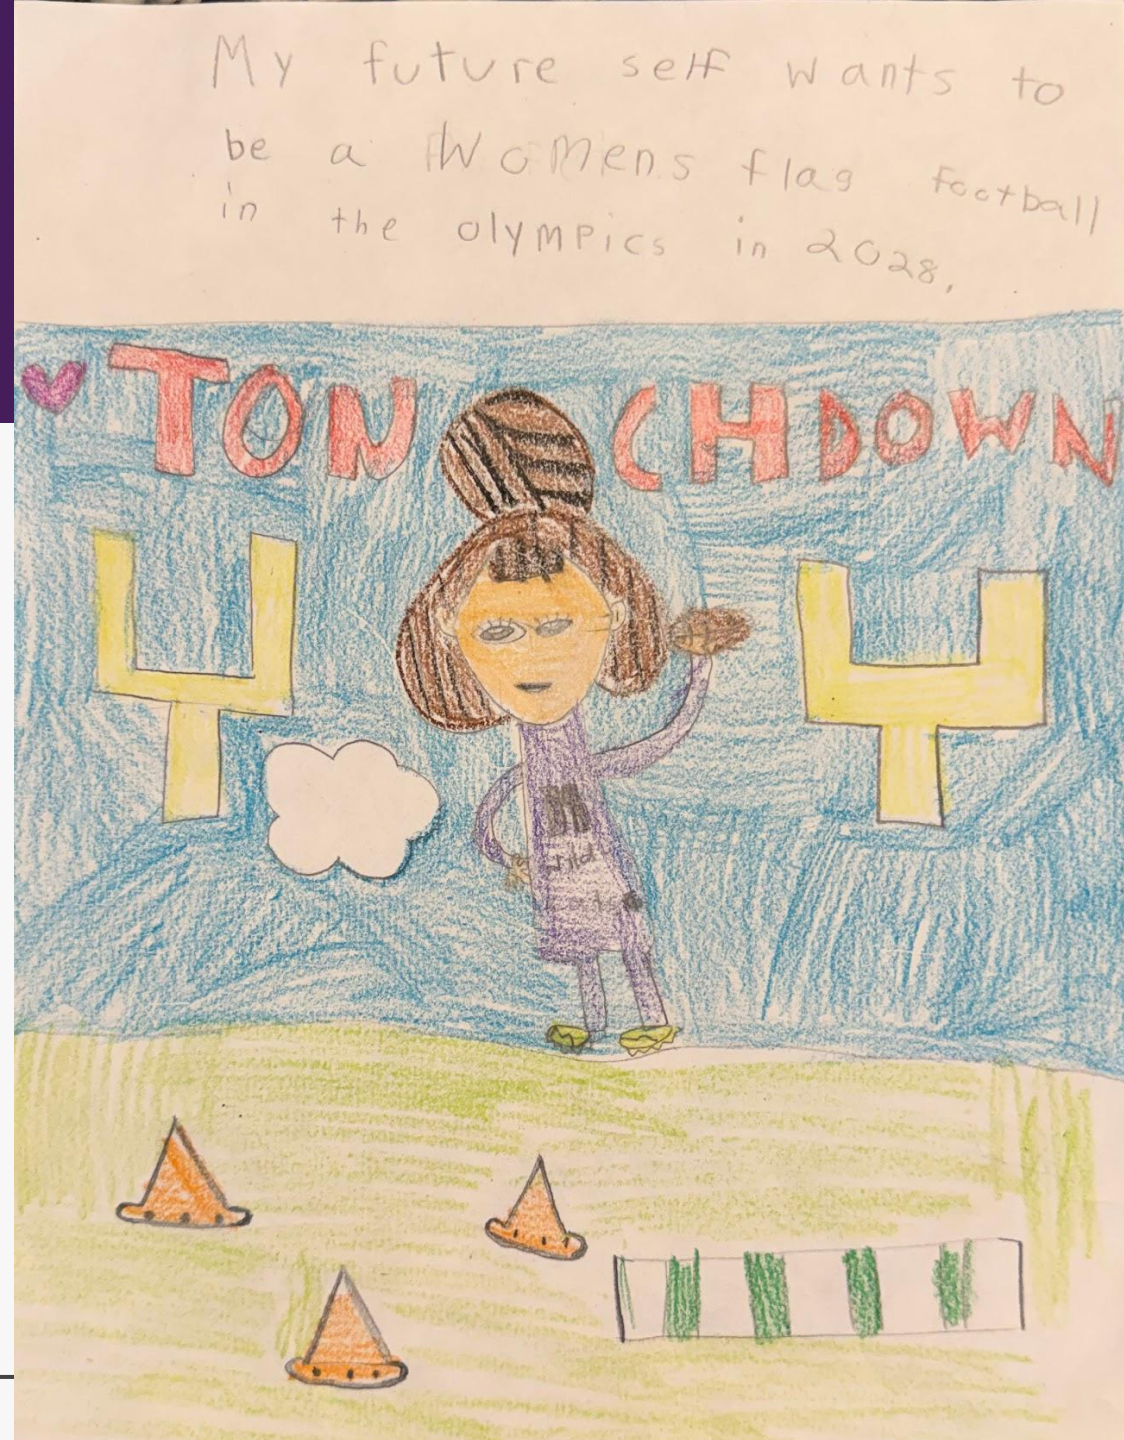 My future self wants to
be a Womens flag football
in the olympics in 2028.
TON CHDOWN
Wild